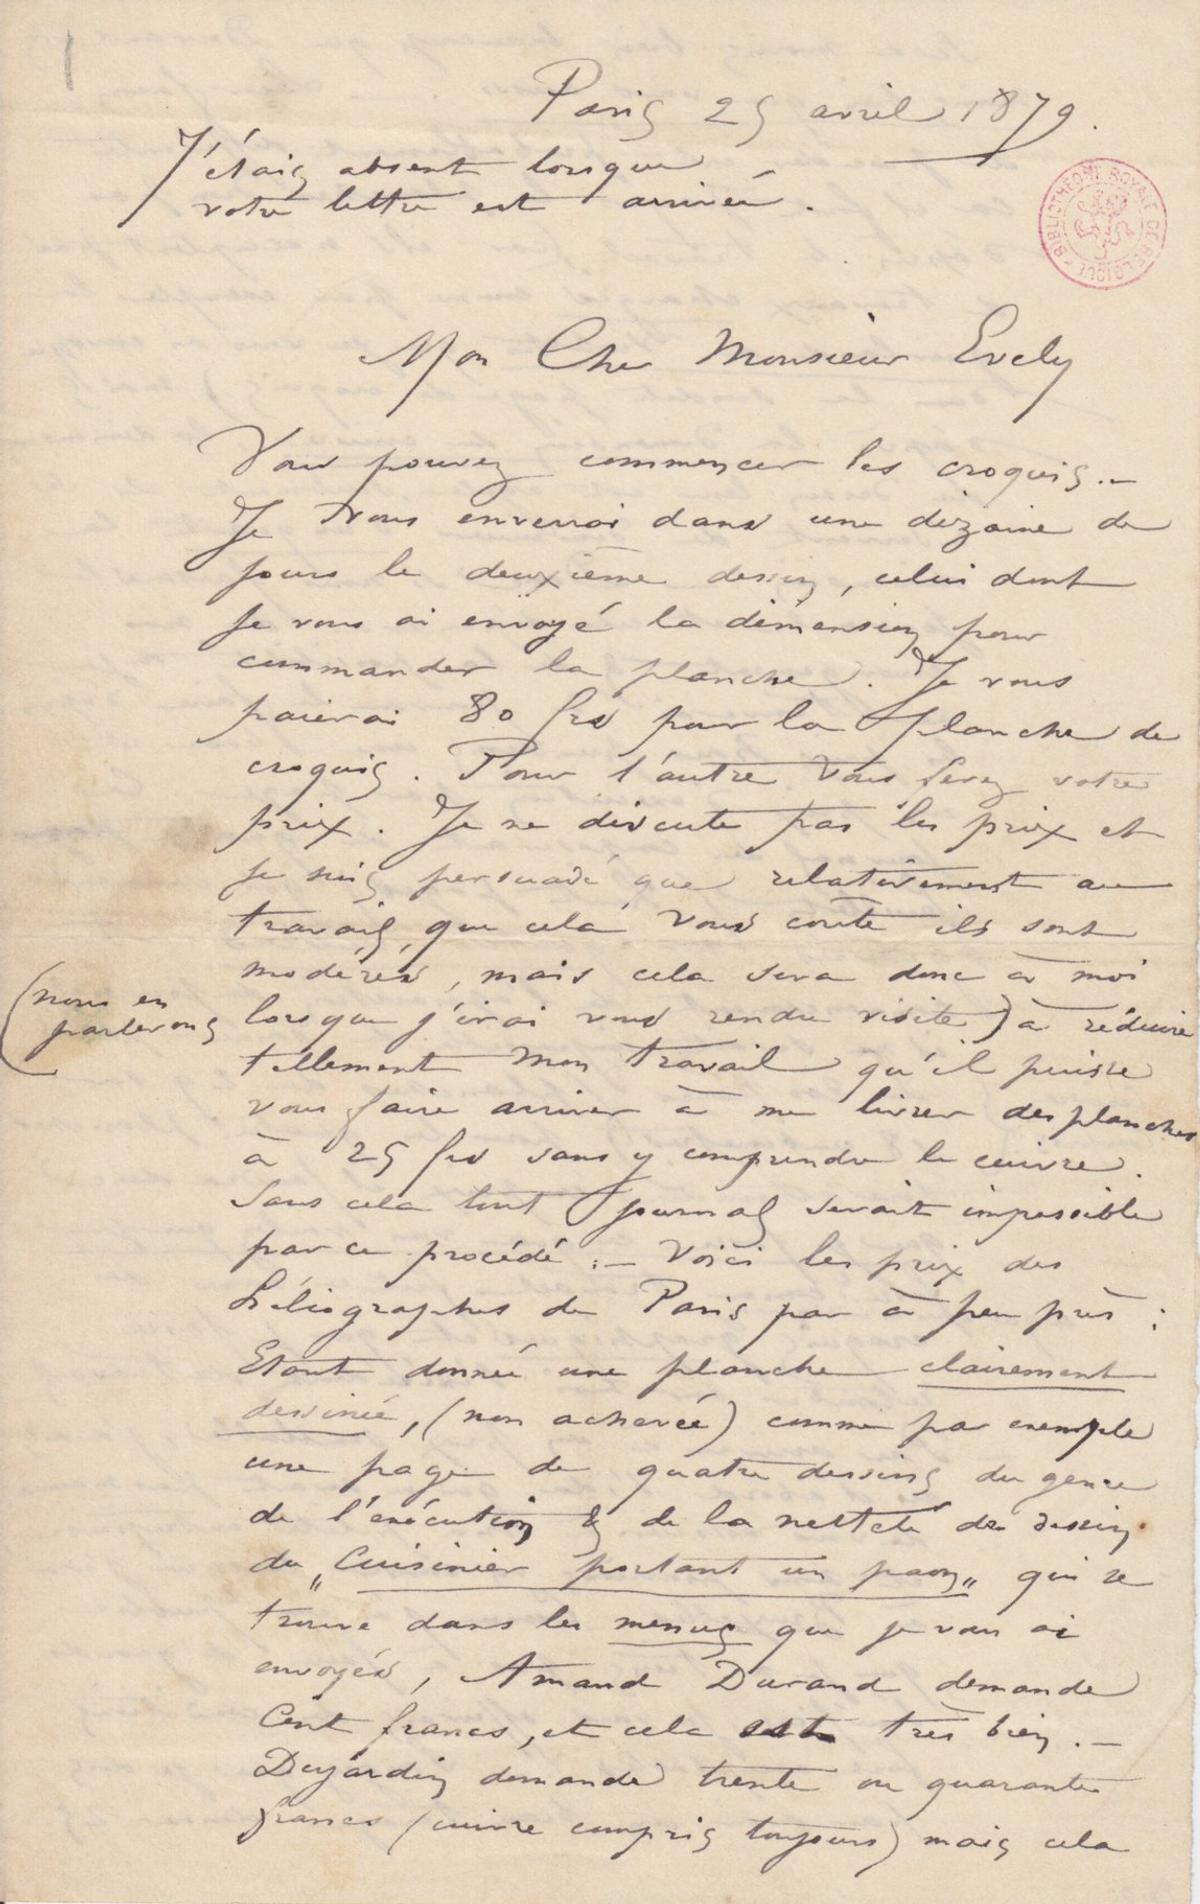 Paris 25 avril 1879.
J'étais absent lorsque
votre lettre est arrivée.
BIBLIOTHÈQUE ROYALE DE BELGIQUE
Mon Cher Monsieur Evely
Vous pouvez commencer les croquis. —
Je vous enverrai dans une dizaine de
jours le deuxième dessin, celui dont
je vous ai envoyé la dimension pour
commander la planche. Je vous
paierai 80 frs pour la planche de
croquis. Pour l'autre vous ferez votre
prix. Je ne discute pas les prix et
je suis persuadé que relativement au
travail que cela vous coute ils sont
modérés, mais cela sera donc à moi
(nous en
parlerons
lorsque j'irai vous rendre visite) à réduire
tellement mon travail qu'il puisse
vous faire arriver à me livrer des planches
à 25 frs sans y comprendre le cuivre.
Sans cela tout journal serait impossible
par ce procédé : — Voici les prix des
héliographes de Paris par à peu près :
Etant donnée une planche clairement
dessinée, (non achevée) comme par exemple
une page de quatre dessins du genre
de l'exécution & de la netteté du dessin
du „Cuisinier portant un paon„ qui se
trouve dans les menus que je vous ai
envoyés, Amand Durand demande
Cent francs, et cela est très bien. —
Dujardin demande trente ou quarante
francs (cuivre compris toujours) mais cela